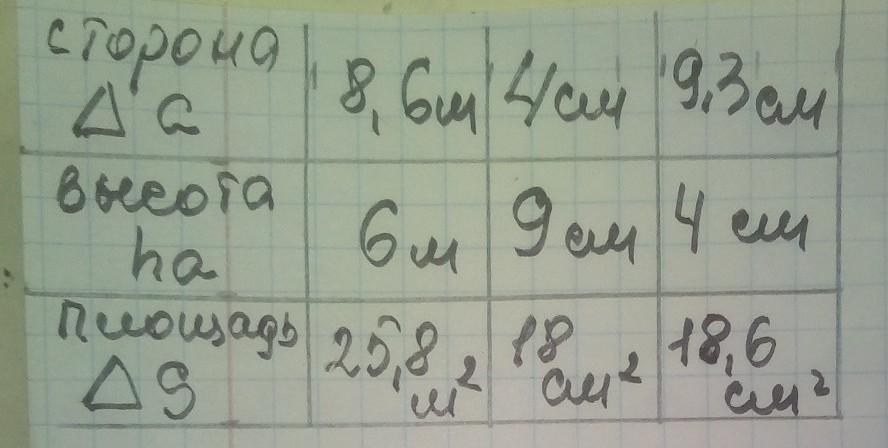 сторона
△ a 8,6м 4см 9,3см
высота
ha 6м 9см 4 см
площадь
△ S 25,8 м² 18 см² 18,6 см²